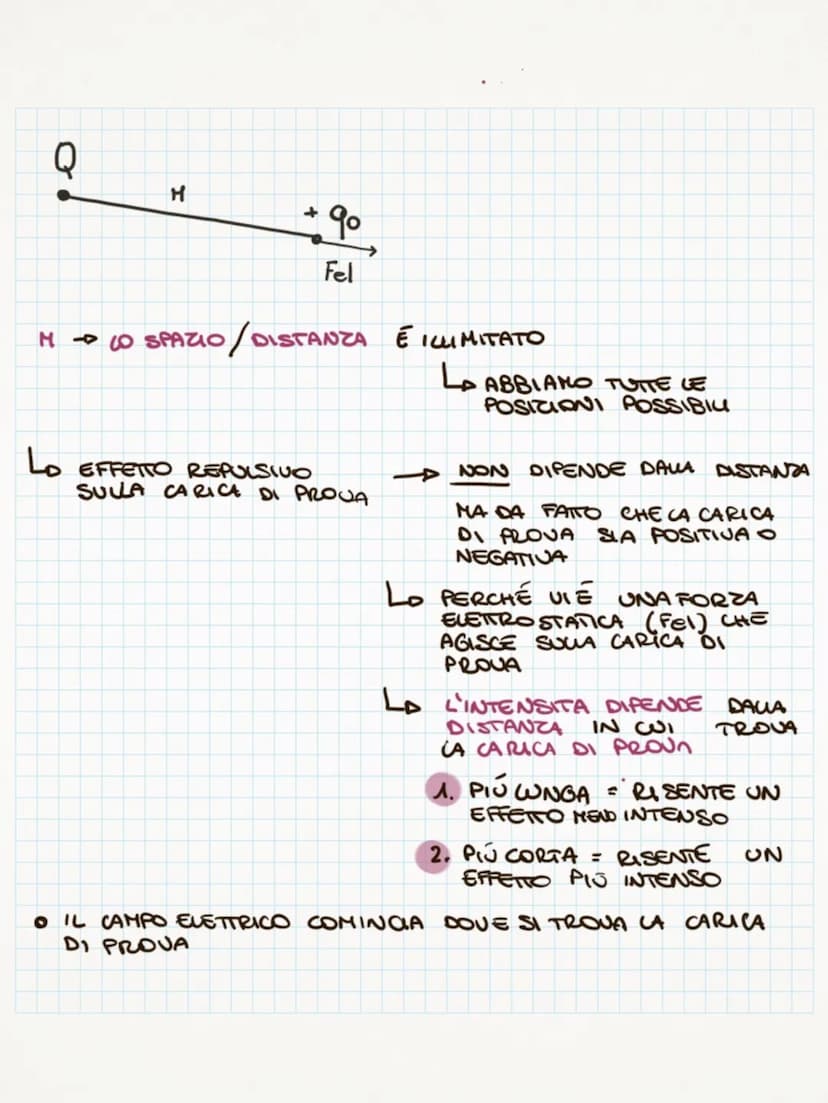 Q
M
+ q0
Fel
M → LO SPAZIO/DISTANZA É ILLIMITATO
↳ ABBIAMO TUTTE LE
POSIZIONI POSSIBILI
↳ EFFETTO REPULSIVO
SULLA CARICA DI PROVA
→ NON DIPENDE DALLA DISTANZA
MA DA FATTO CHE LA CARICA
DI PROVA SIA POSITIVA O
NEGATIVA
↳ PERCHÉ VI É UNA FORZA
ELETTROSTATICA (Fel) CHE
AGISCE SULLA CARICA DI
PROVA
↳ L'INTENSITA DIPENDE DALLA
DISTANZA IN CUI TROVA
LA CARICA DI PROVA
1. PIÚ LUNGA = RISENTE UN
EFFETTO MENO INTENSO
2. PIÚ CORTA = RISENTE UN
EFFETTO PIÚ INTENSO
• IL CAMPO ELETTRICO COMINCIA DOVE SI TROVA LA CARICA
DI PROVA